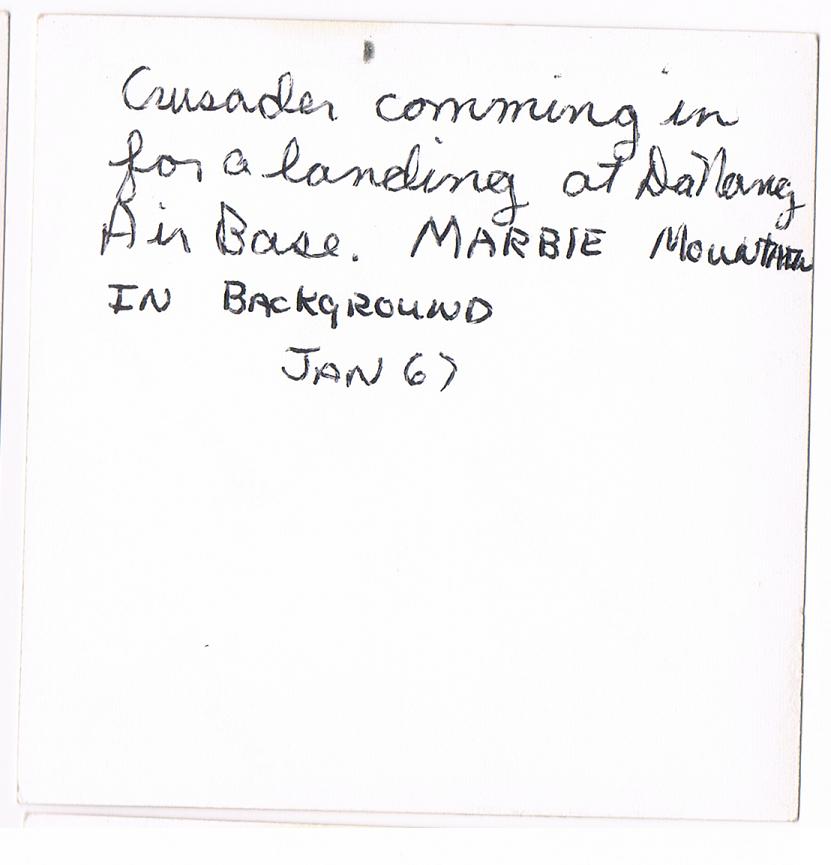 Crusader comming in
for a landing at DaNang
Air Base. MARBlE MOUNTAIN
IN BACKGROUND
JAN 67